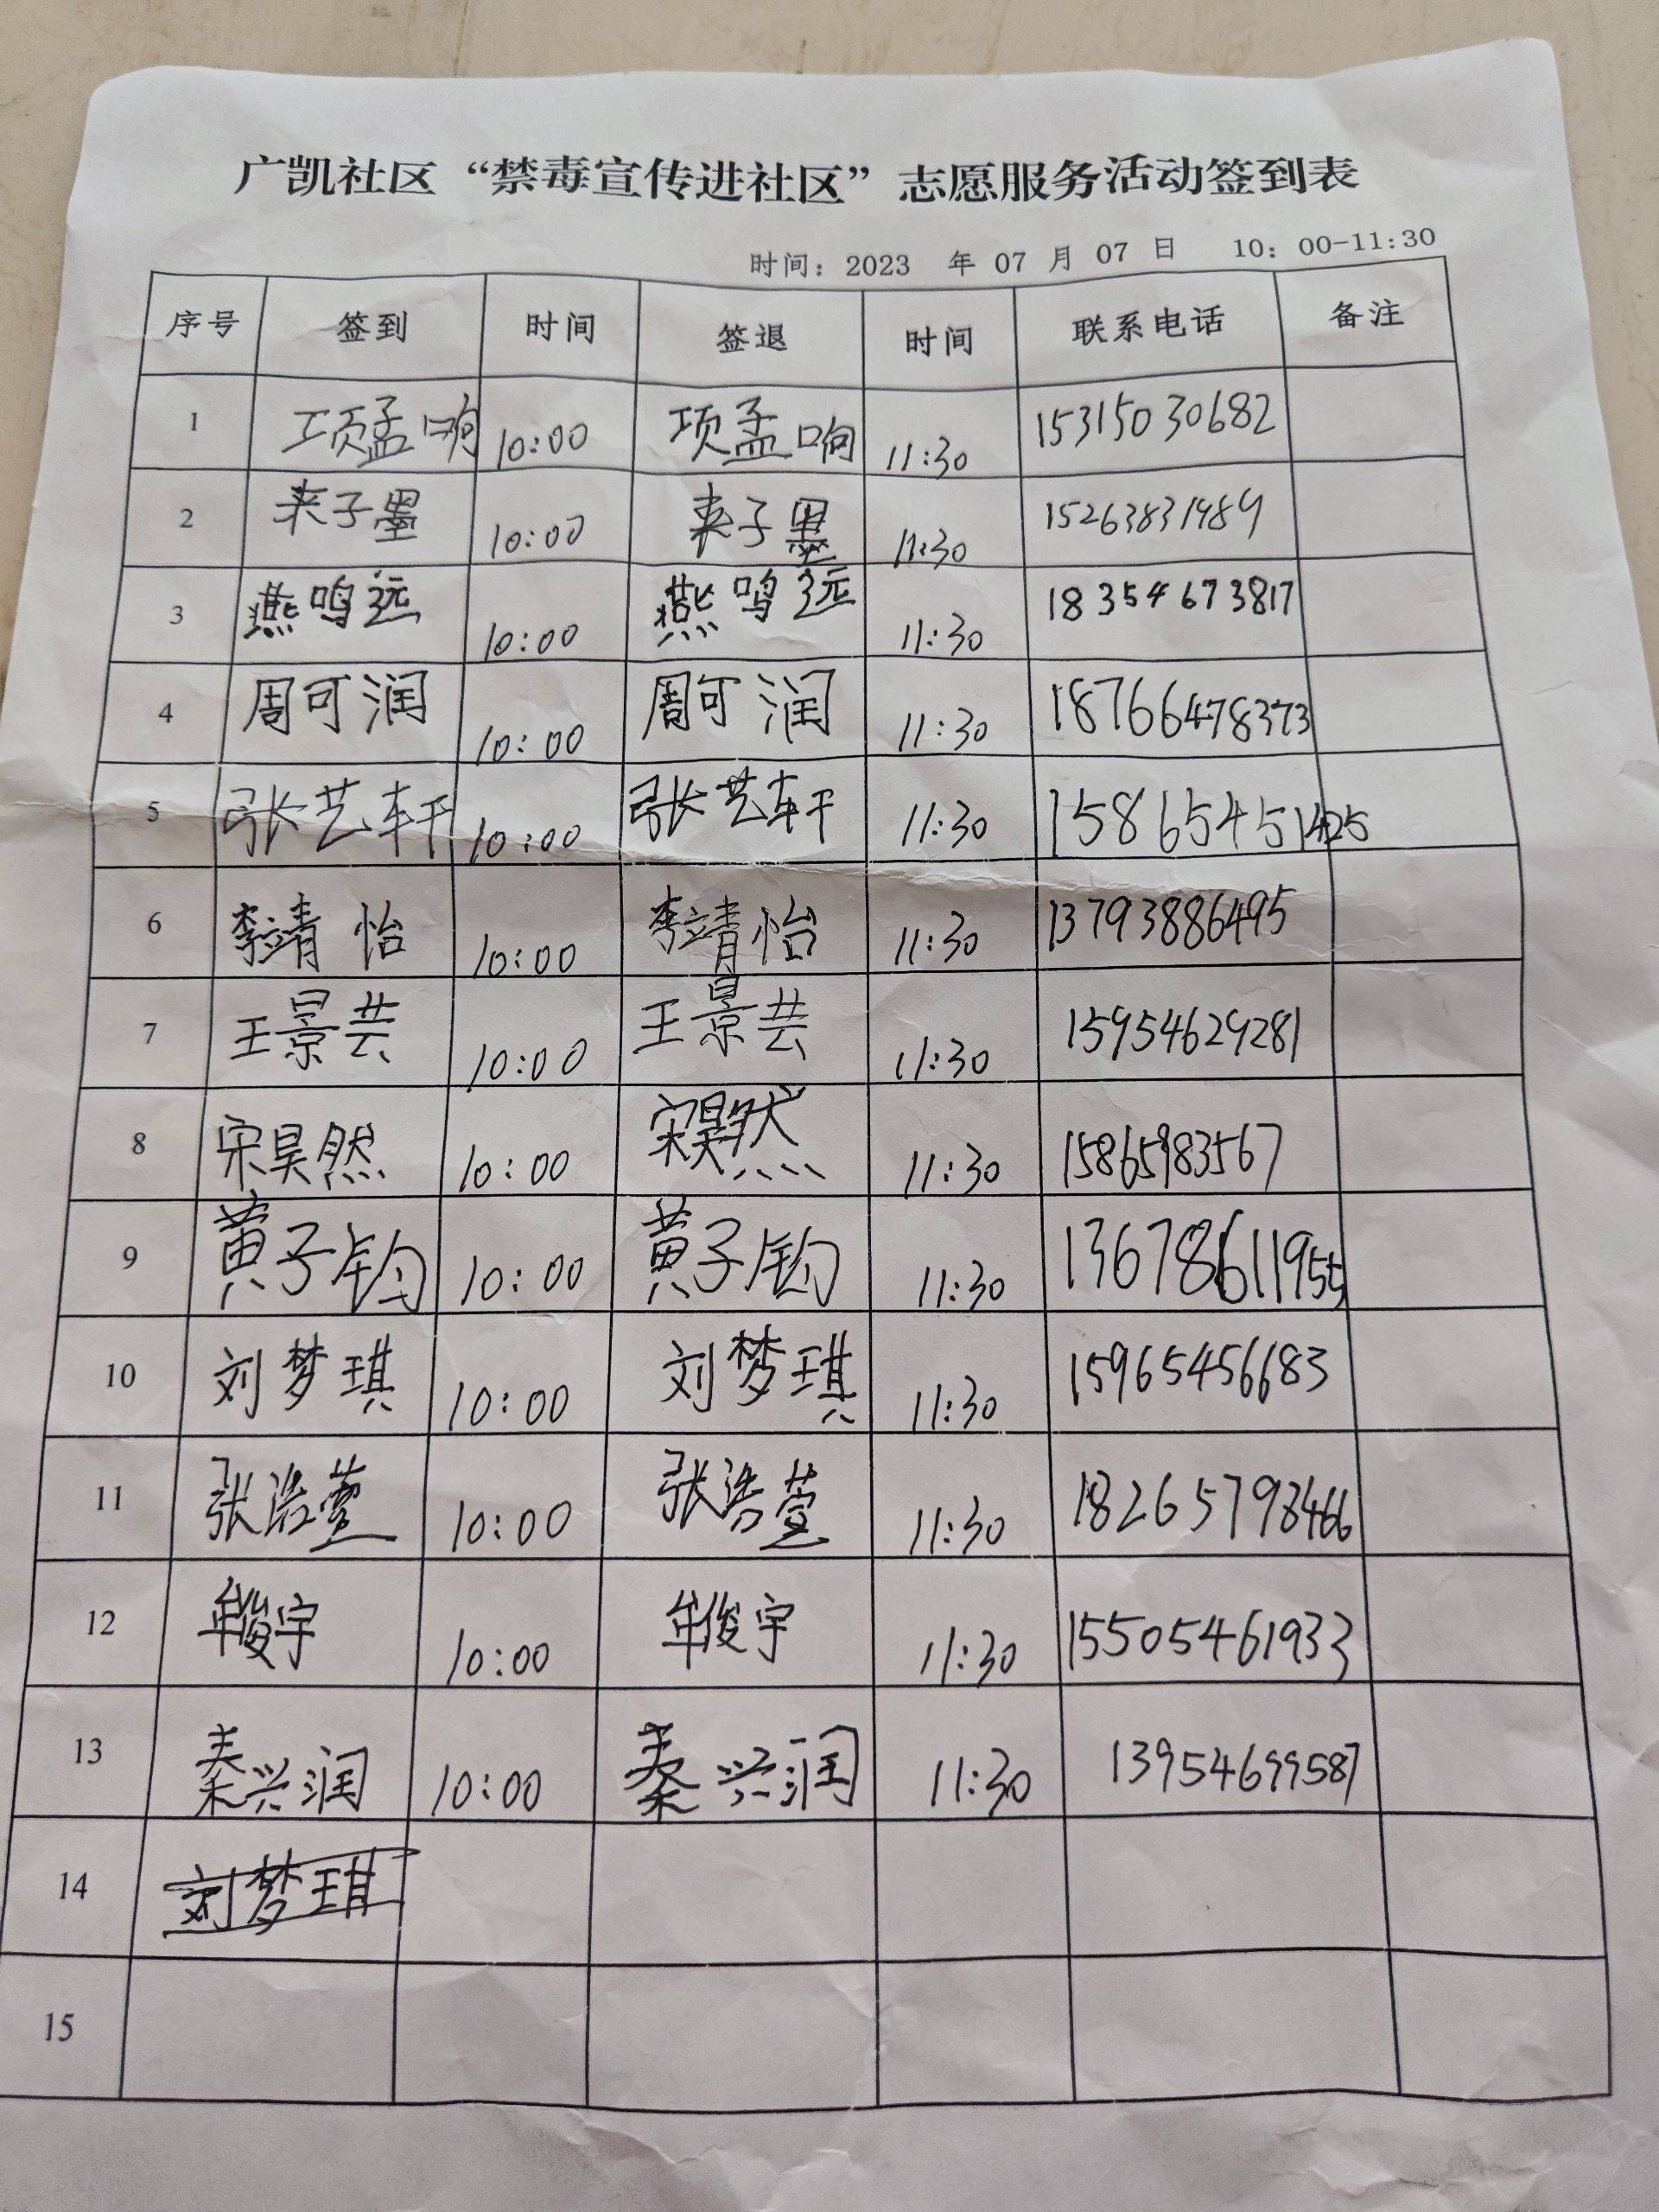 广凯社区“禁毒宣传进社区”志愿服务活动签到表
时间：2023 年 07 月 07 日 10：00-11:30
序号 签到 时间 签退 时间 联系电话 备注
1 项孟响 10:00 项孟响 11:30 15315030682
2 来子墨 10:00 来子墨 11:30 15263831489
3 燕鸣远 10:00 燕鸣远 11:30 18354673817
4 周可润 10:00 周可润 11:30 18766478373
5 张艺轩 10:00 张艺轩 11:30 15865451425
6 李靖怡 10:00 李靖怡 11:30 13793886495
7 王景芸 10:00 王景芸 11:30 15954629281
8 宋昊然 10:00 宋昊然 11:30 15865983567
9 黄子钧 10:00 黄子钧 11:30 13678611955
10 刘梦琪 10:00 刘梦琪 11:30 15965456683
11 张浩萱 10:00 张浩萱 11:30 18265798466
12 牟俊宇 10:00 牟俊宇 11:30 15505461933
13 秦兴润 10:00 秦兴润 11:30 13954699587
14 刘梦琪
15